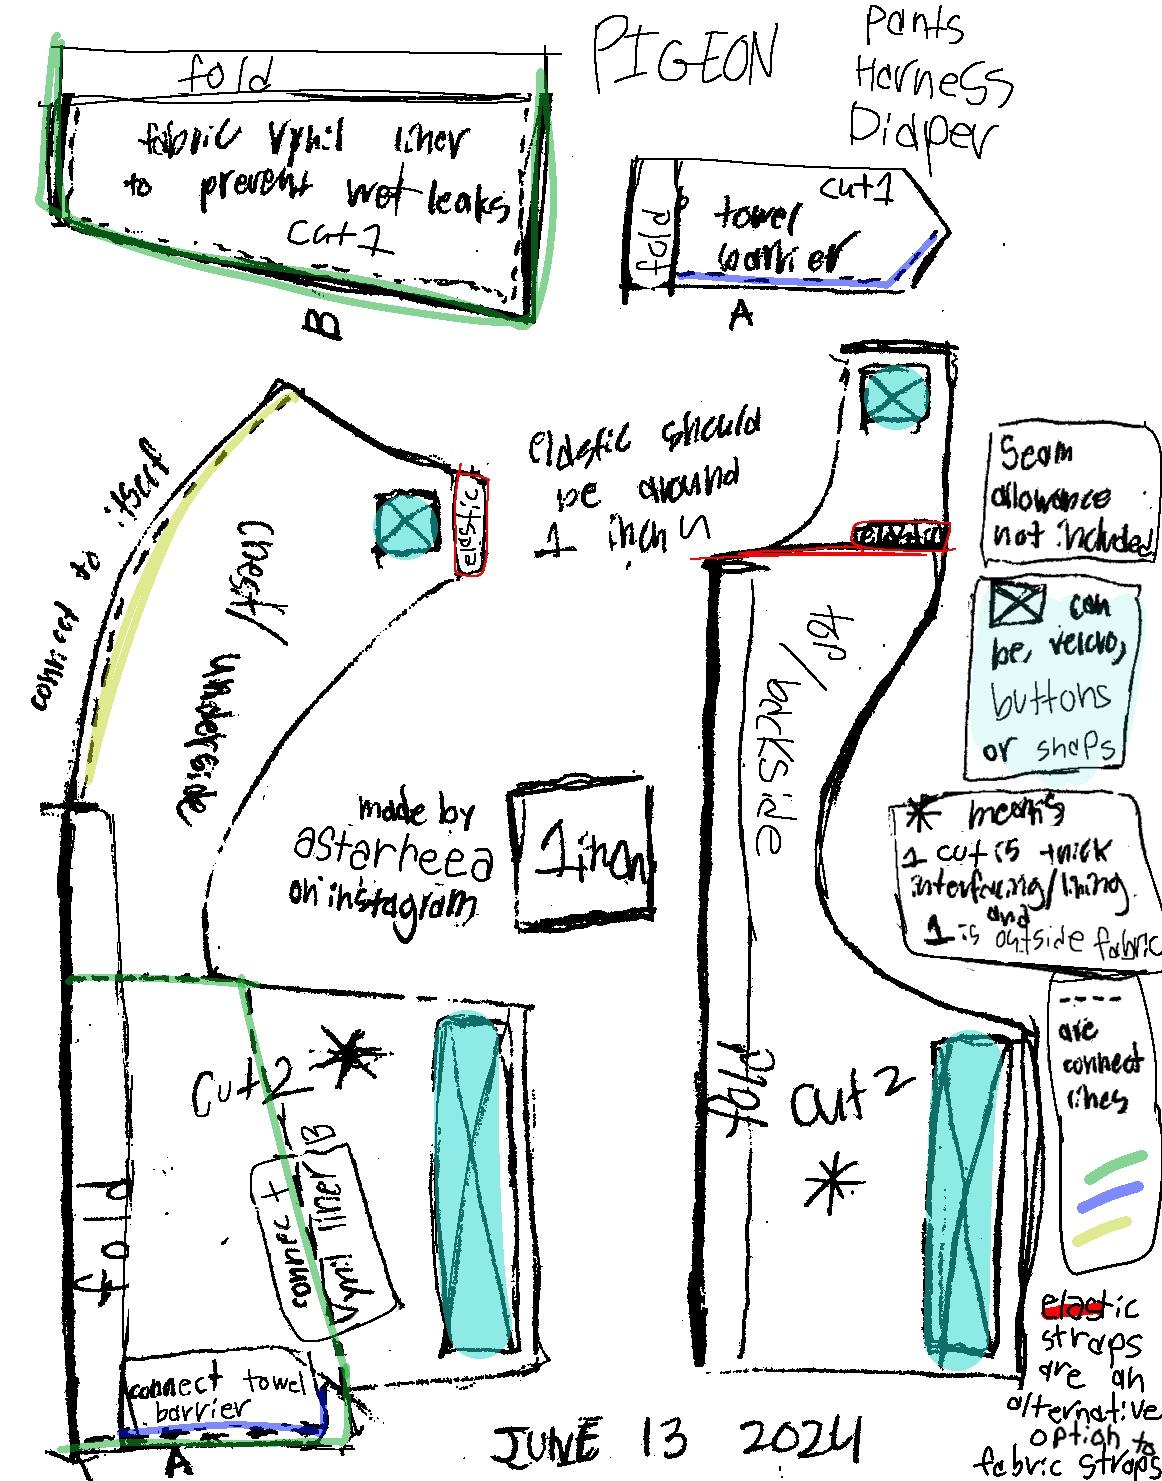 PIGEON
pants
Harness
Diaper
fold
fabric vynil liner
to prevent wet leaks
cut 1
B
fold
cut 1
towel
barrier
A
elastic should
be around
1 inch
elastic
elastic
connect to itself
chest/
underside
top/
backside
Seam
allowance
not included
can
be, velcro,
buttons
or snaps
made by
astarheea
on instagram
1 inch
* means
1 cut is thick
interfacing/lining
and
1 is outside fabric
----
are
connect
lines
cut 2
*
fold
connect to
vynil liner B
connect towel
barrier
A
fold
cut 2
*
elastic
straps
are an
alternative
option to
fabric straps
JUNE 13 2024